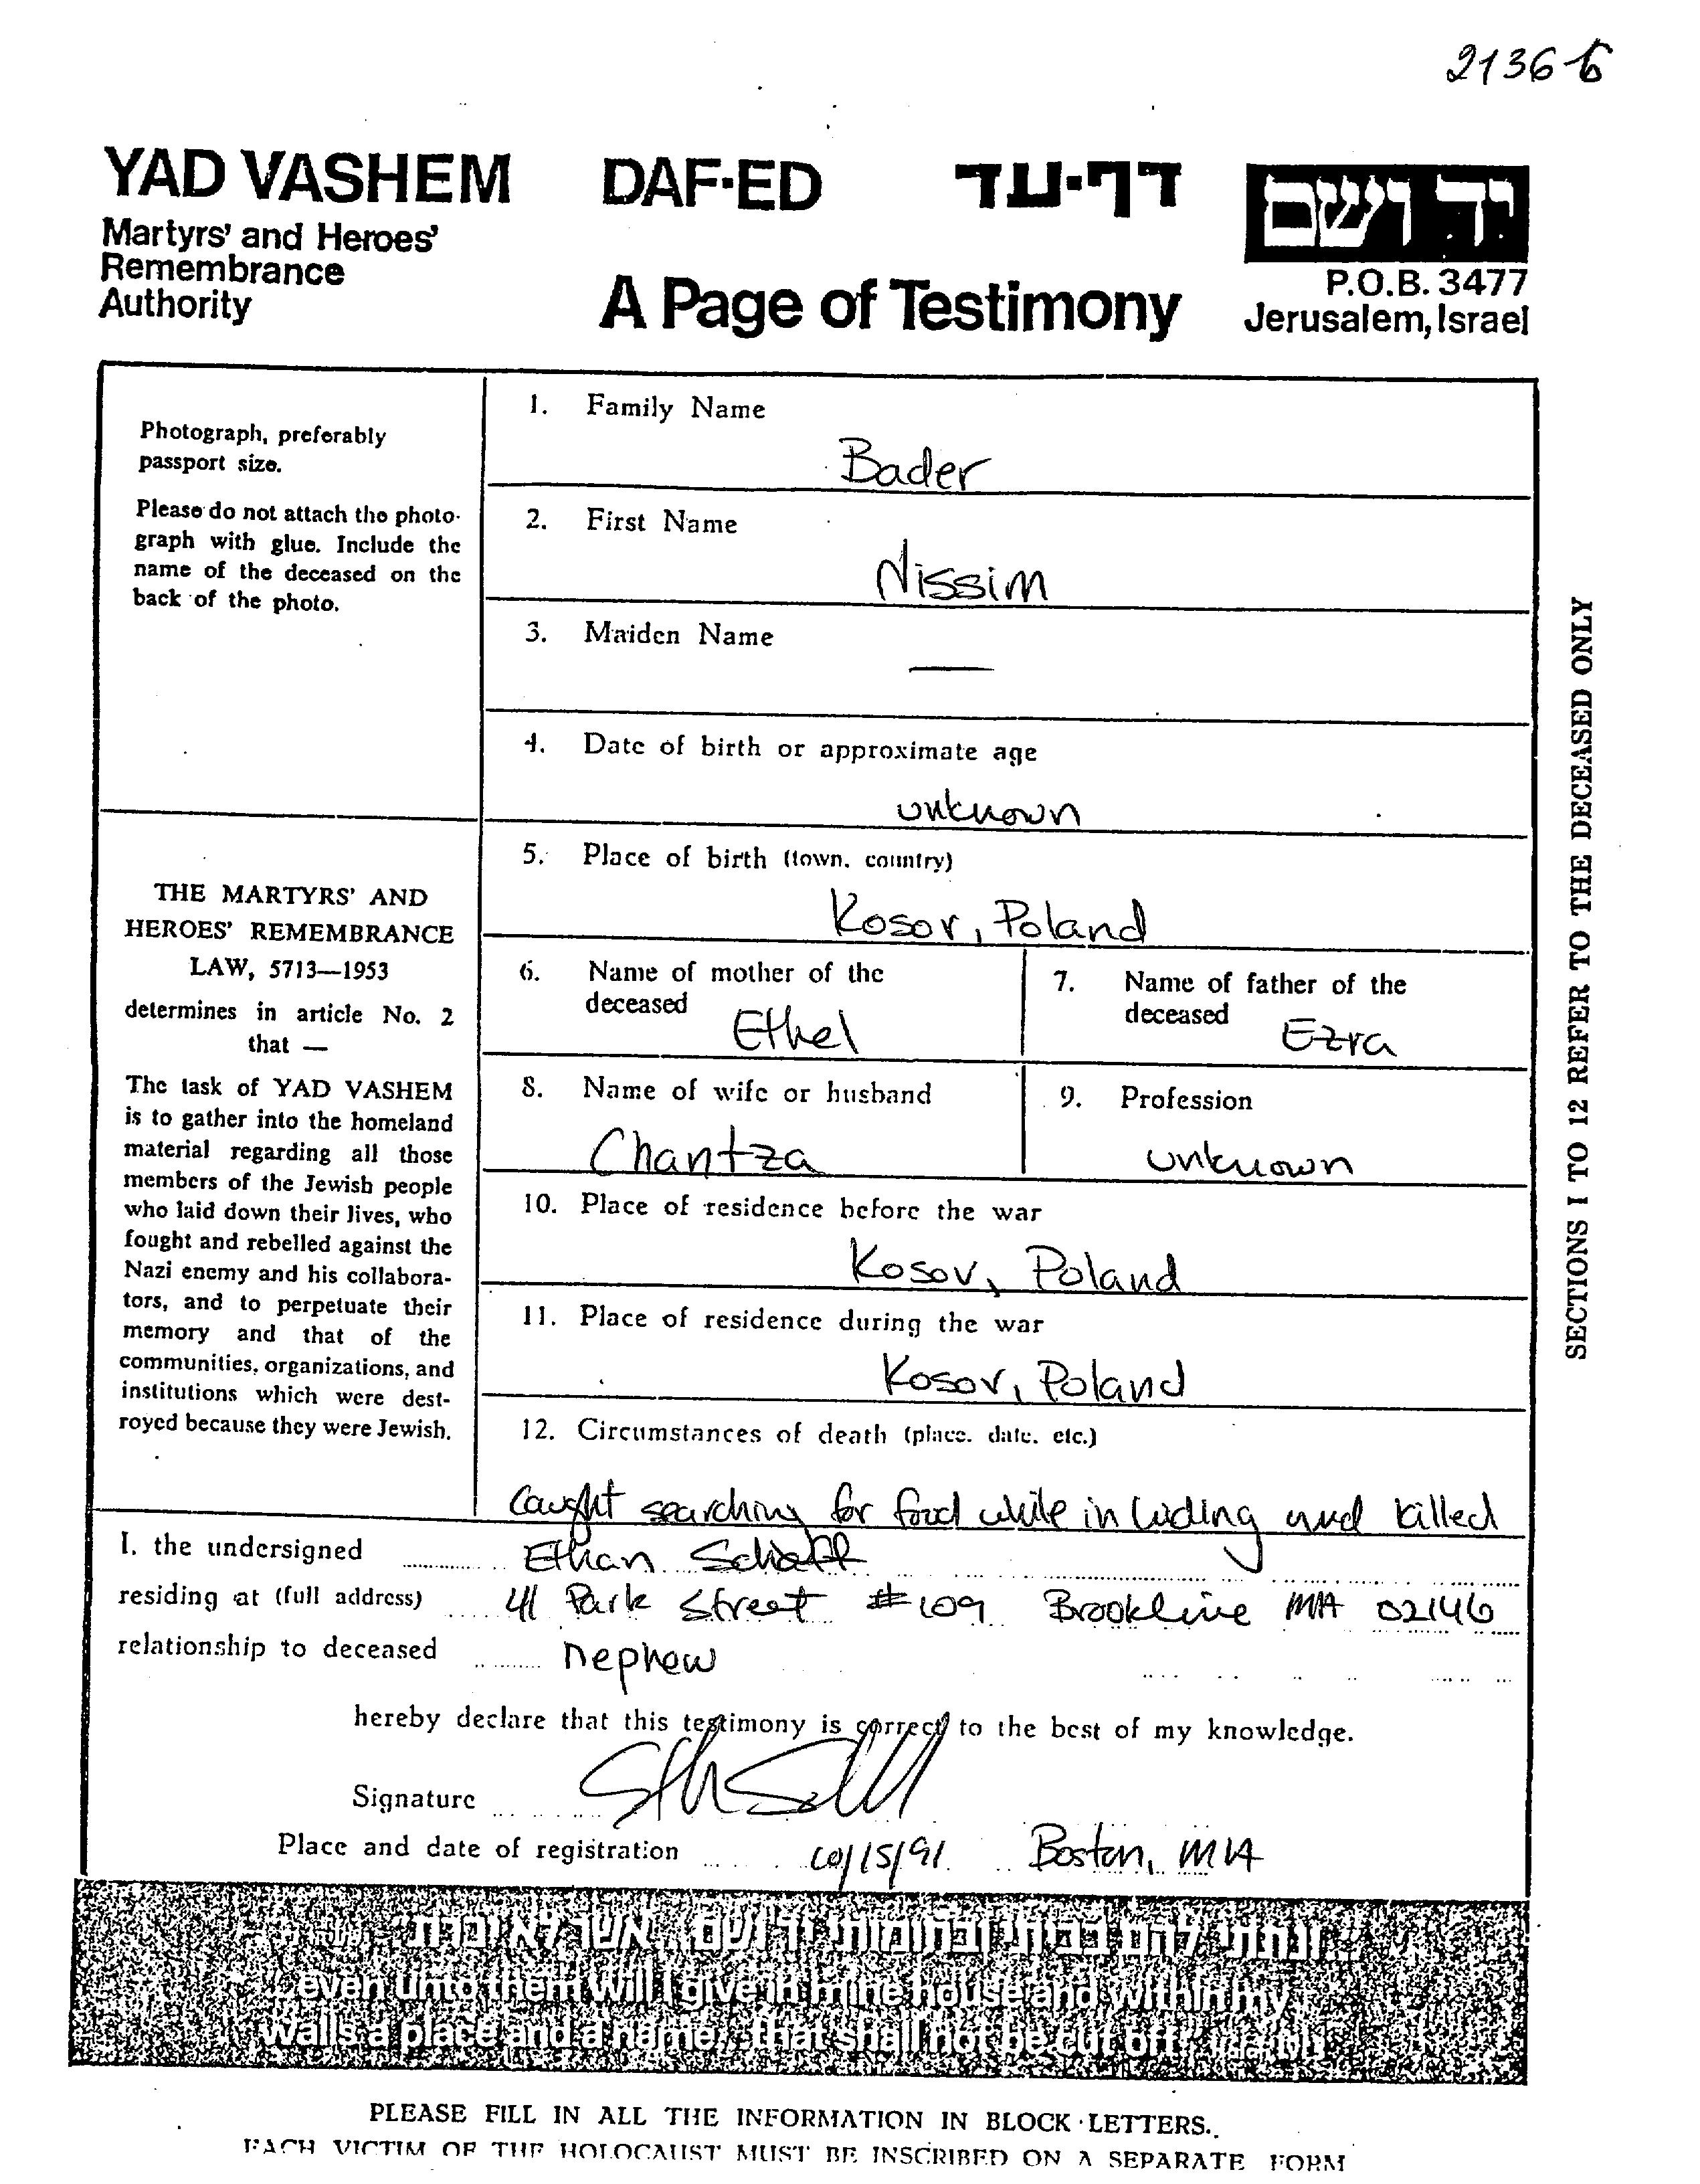 21366
YAD VASHEM DAF-ED דף-עד יד ושם
Martyrs' and Heroes'
Remembrance
Authority
A Page of Testimony
P.O.B. 3477
Jerusalem, Israel
Photograph, preferably
passport size.
Please do not attach the photo-
graph with glue. Include the
name of the deceased on the
back of the photo.
THE MARTYRS' AND
HEROES' REMEMBRANCE
LAW, 5713—1953
determines in article No. 2
that —
The task of YAD VASHEM
is to gather into the homeland
material regarding all those
members of the Jewish people
who laid down their lives, who
fought and rebelled against the
Nazi enemy and his collabora-
tors, and to perpetuate their
memory and that of the
communities, organizations, and
institutions which were dest-
royed because they were Jewish.
1. Family Name
Bader
2. First Name
Nissim
3. Maiden Name
—
4. Date of birth or approximate age
unknown
5. Place of birth (town, country)
Kosov, Poland
6. Name of mother of the
deceased
Ethel
7. Name of father of the
deceased
Ezra
8. Name of wife or husband
Chantza
9. Profession
unknown
10. Place of residence before the war
Kosov, Poland
11. Place of residence during the war
Kosov, Poland
12. Circumstances of death (place, date, etc.)
Caught searching for food while in hiding and killed
SECTIONS 1 TO 12 REFER TO THE DECEASED ONLY
I, the undersigned Ethan Schaff
residing at (full address) 41 Park Street #109 Brookline MA 02146
relationship to deceased nephew
hereby declare that this testimony is correct to the best of my knowledge.
Signature
Place and date of registration 10/15/91 Boston, MA
ונתתי להם בביתי ובחומותי יד ושם... אשר לא יכרת
...even unto them will I give in mine house and within my
walls a place and a name... that shall not be cut off
PLEASE FILL IN ALL THE INFORMATION IN BLOCK LETTERS.
EACH VICTIM OF THE HOLOCAUST MUST BE INSCRIBED ON A SEPARATE FORM